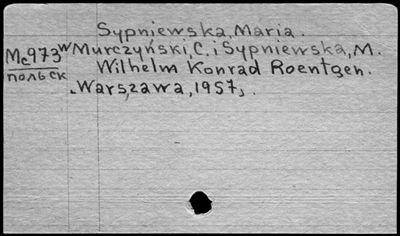 Sypniewska, Maria.
Mc973 w Murczyński, C. i Sypniewska, M.
польск Wilhelm Konrad Roentgen.
Warszawa, 1957.